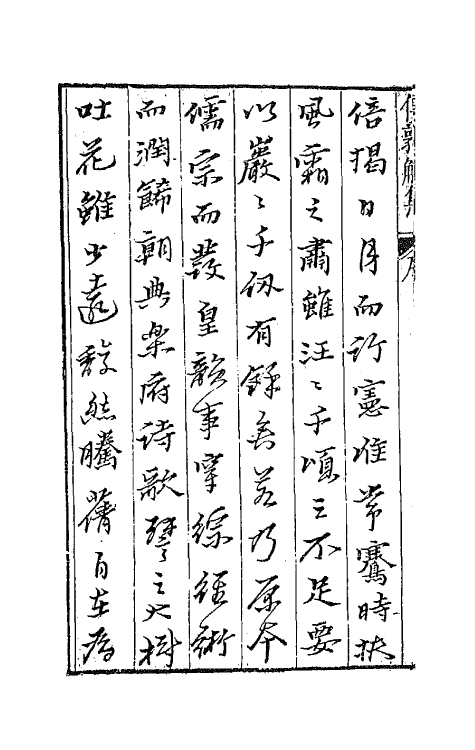 倍揭日月而行憲惟常騫時挾
風霜之肅雖汪〻千頃之不足要
以巖〻千仞有餘矣若乃原本
儒宗而發皇韻事穿綜經術
而潤飾朝典樂府詩歌譬之大樹
吐花雖少遠馥然騰蒨自在為